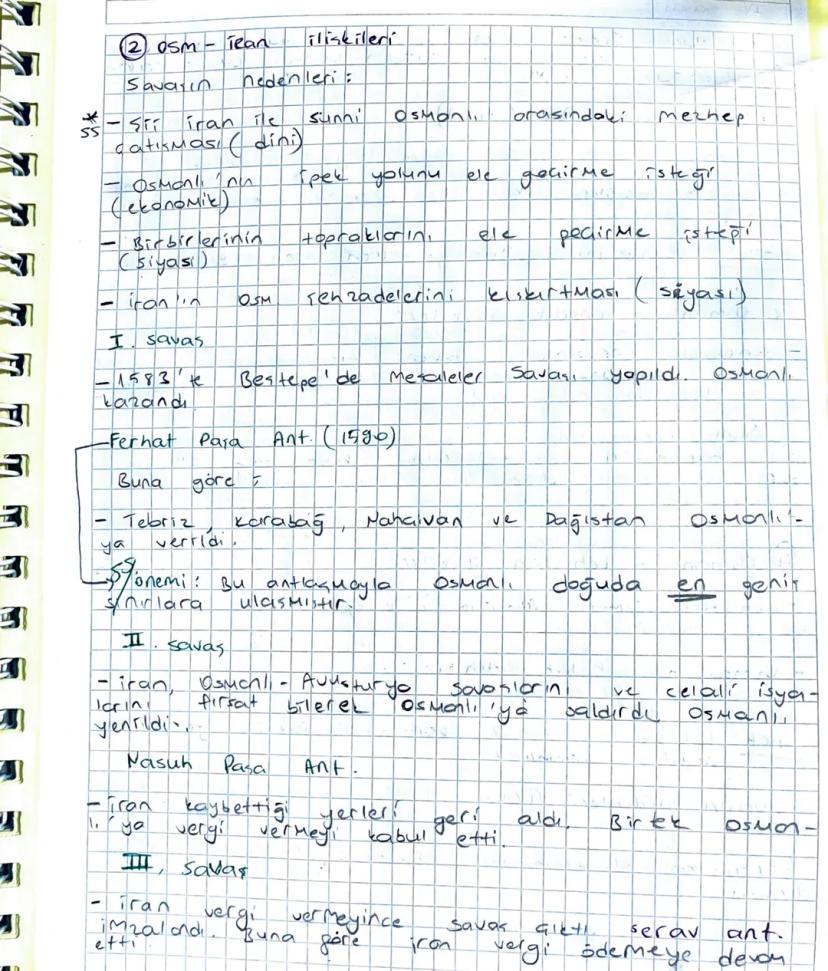 ② osm - iran ilişkileri
Savaşın nedenleri:
* - Şii iran ile sunni Osmanlı arasındaki mezhep
SS çatışması (dini)
- Osmanlı'nın ipek yolunu ele geçirme isteği
(ekonomik)
- Birbirlerinin topraklarını ele geçirme isteği
(siyası)
- iran'ın osm şehzadelerini kışkırtması (siyası)
I. savaş
- 1583'te Beştepe'de Meşaleler Savaşı yapıldı. Osmanlı
kazandı
Ferhat Paşa Ant. (1590)
Buna göre;
- Tebriz, Karabağ, Nahcivan ve Dağıstan Osmanlı-
ya verildi.
SS önemi: Bu antlaşmayla Osmanlı doğuda en geniş
sınırlara ulaşmıştır.
II. savaş
- iran, Osmanlı - Avusturya savaşlarını ve celali isya-
larını fırsat bilerek Osmanlı'ya saldırdı Osmanlı
yenildi.
Nasuh Paşa Ant.
- iran kaybettiği yerleri geri aldı. Birtek Osman-
lı'ya vergi vermeyi kabul etti.
III. savaş
- iran vergi vermeyince savaş çıktı serav ant.
imzalandı. Buna göre iran vergi ödemeye devam
etti